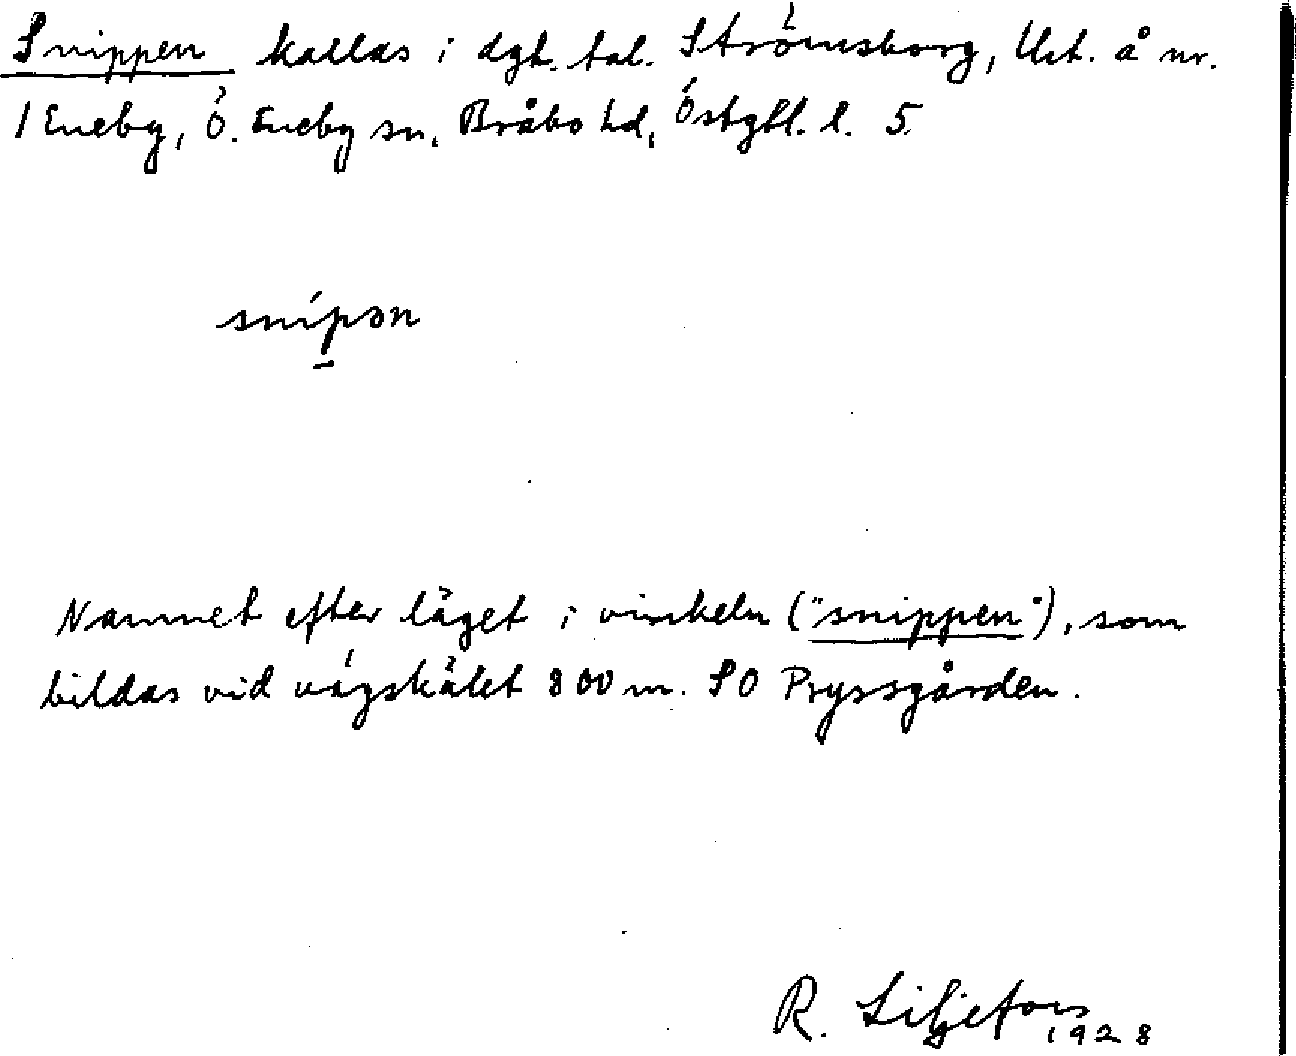 Snippen kallas i dgt. tal. Strömsborg, Urt. å nr.
1 Eneby, Ö. Eneby sn, Bråbo hd, Östgtl. l. 5.
snípən
Namnet efter läget i vinkeln ("snippen"), som
bildas vid vägskälet 800 m. SO Pryssgården.
R. Liljefors
1928